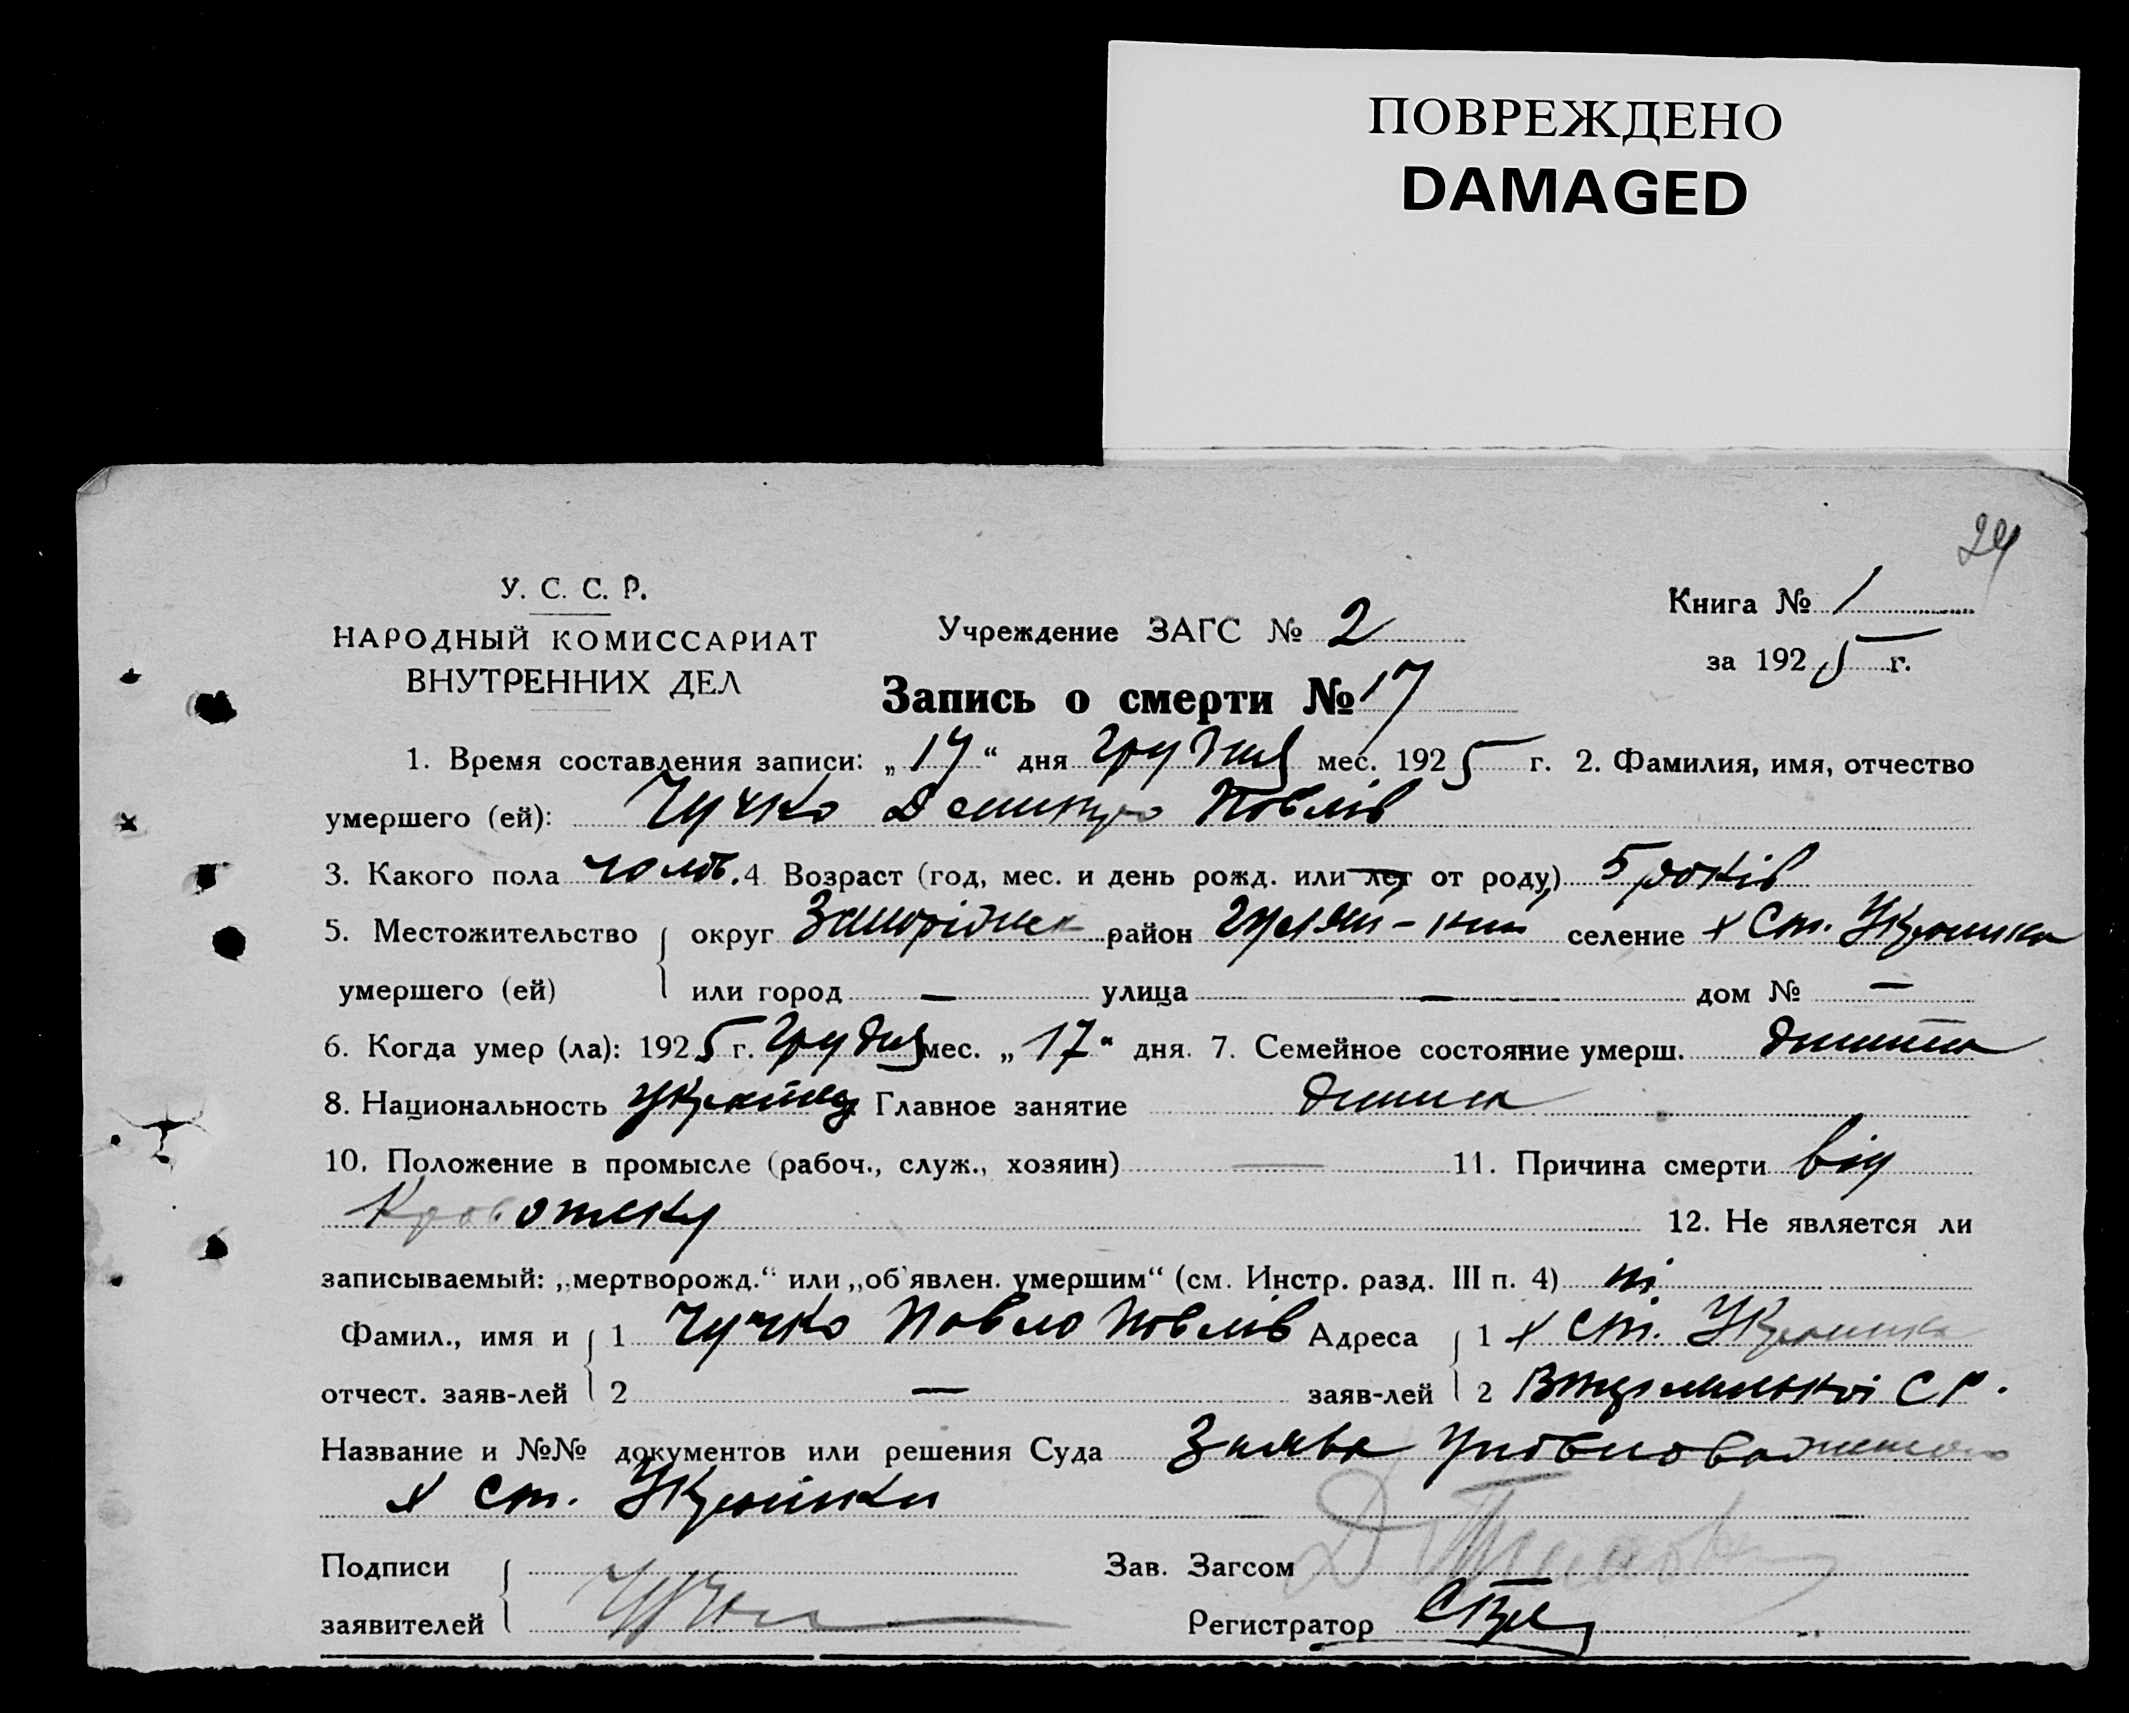 ПОВРЕЖДЕНО
DAMAGED
24
У. С. С. Р.
НАРОДНЫЙ КОМИССАРИАТ
ВНУТРЕННИХ ДЕЛ
Учреждение ЗАГС № 2
Книга № 1
за 1925 г.
Запись о смерти № 17
1. Время составления записи: „17“ дня грудня мес. 1925 г. 2. Фамилия, имя, отчество
умершего (ей): Чучко Дмитро Павлів
3. Какого пола чолов. 4 Возраст (год, мес. и день рожд. или лет от роду) 5 років
5. Местожительство умершего (ей) округ район селение х Ст. Укр
или город — улица — дом № —
6. Когда умер (ла): 1925 г. грудня мес. „17“ дня. 7. Семейное состояние умерш. дитина
8. Национальность україн Главное занятие дитина
10. Положение в промысле (рабоч., служ., хозяин) — 11. Причина смерти від
Кровотеку
12. Не является ли
записываемый: „мертворожд.“ или „об'явлен. умершим“ (см. Инстр. разд. III п. 4) ні
Фамил., имя и отчест. заяв-лей 1 Чучко Павло Павлів Адреса заяв-лей 1 х Ст.
2 — 2 СР.
Название и №№ документов или решения Суда Заява Уповноваженого
х Ст.
Подписи заявителей
Зав. Загсом
Регистратор